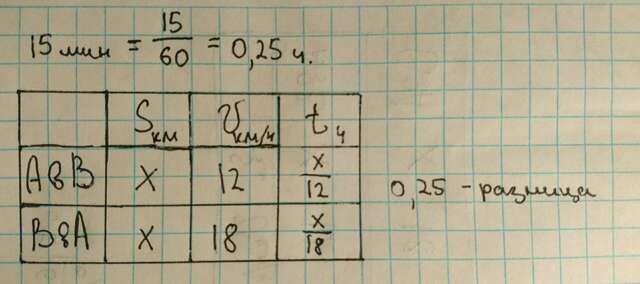 15 мин = 15/60 = 0,25 ч.
S км V км/ч t ч
А в В X 12 x/12
В в А X 18 x/18
0,25 - разница